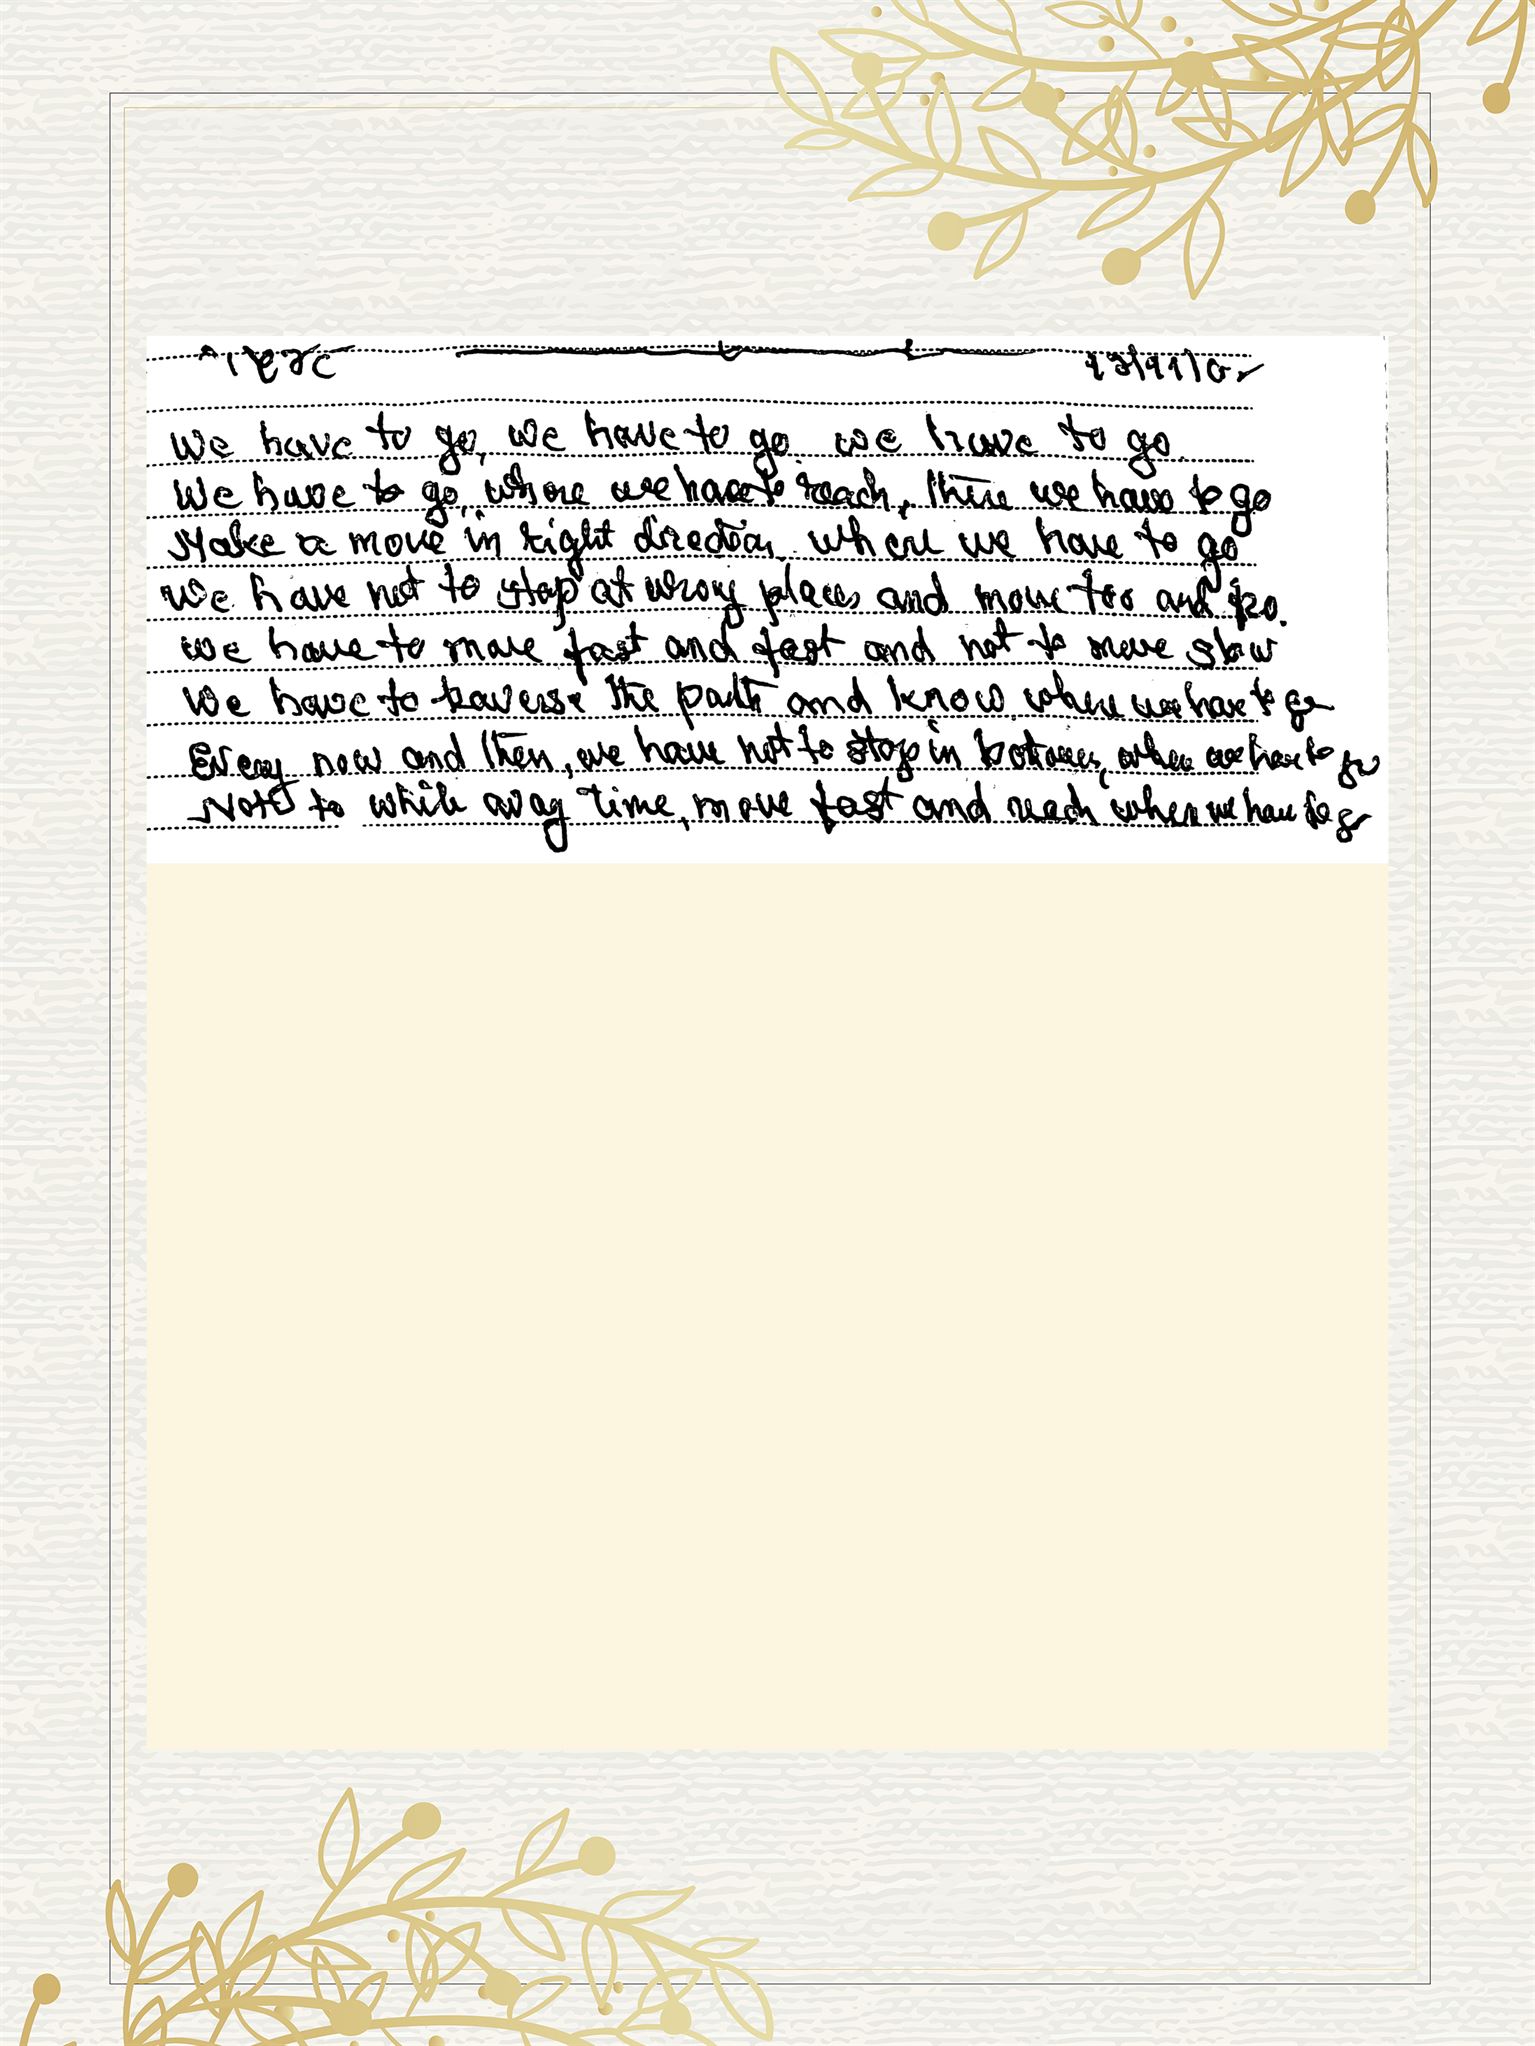 We have to go, we have to go we have to go.
We have to go, where we have to reach, there we have to go
Make a move in right direction where we have to go
We have not to stop at wrong places and move too and fro.
We have to move fast and fast and not to move slow
We have to traverse the path and know where we have to go
Every now and then, we have not to stop in between, where we have to go
Not to while away time, move fast and reach where we have to go